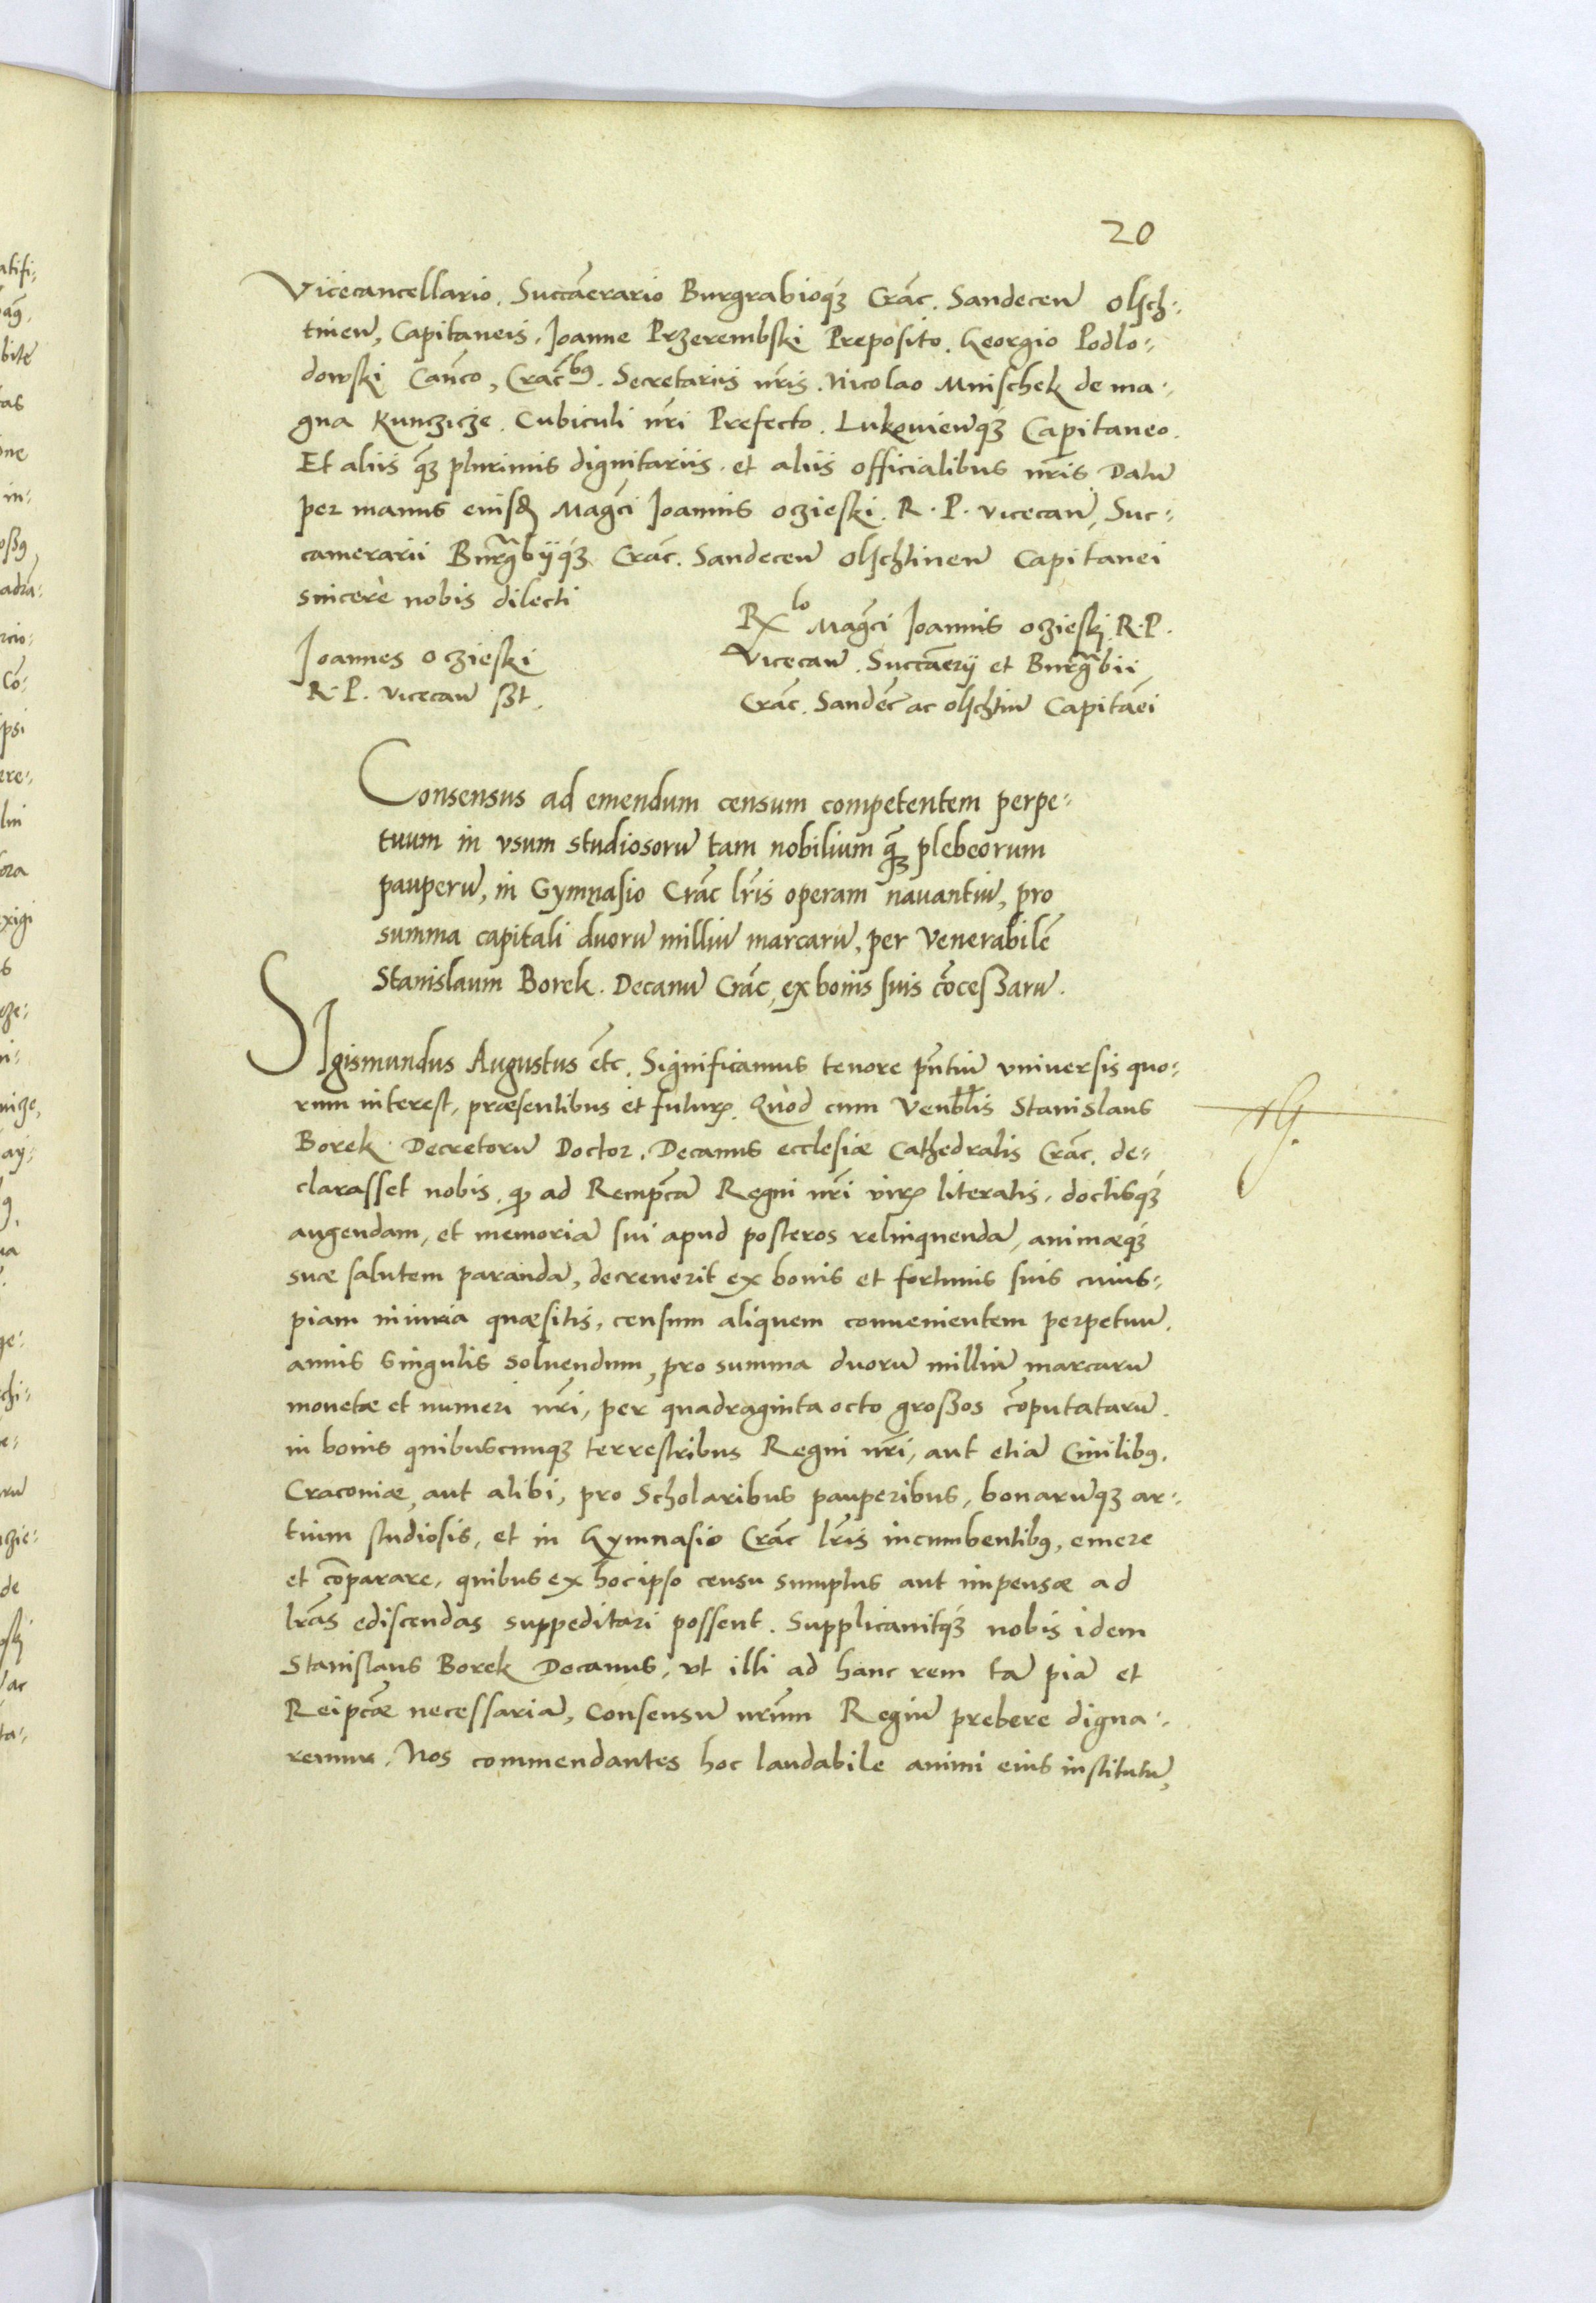 20
Vicecancellario. Succãerario Burgrabioqꝫ Crac̃. Sandeceñ Olsch⸗
tineñ, Capitaneis. Joanne Przerembski Preposito. Georgio Podlo⸗
dowski Cañco, Crac̃bꝰ. Secretariis nr̃is. Nicolao Mnischek de ma⸗
gna Kunczicze. Cubiculi nr̃i Prefecto. Lukovieñqꝫ Capitaneo.
Et aliis qꝫ plurimis dignitariis. et aliis officialibus nr̃is. Datũ
per manus eiusđ Magc̃i Joannis Oczieski. R. P. vicecañ, Suc⸗
camerarii Burg̃bijqꝫ Crac̃. Sandeceñ Olschtineñ Capitanei
sincere nobis dilecti
Joannes Oczieski
R. P. vicecañ sst.
Rx lo Magc̃i Joannis Oczieski R. P.
Vicecañ. Succãerij et Burg̃bii
Crac̃. Sandec̃ ac Olschtiñ Capitãei
Consensus ad emendum censum competentem perpe⸗
tuum in vsum studiosorũ tam nobilium qꝫ̃ plebeorum
pauperũ, in Gymnasio Crac̃ lr̃is operam nauantiũ, pro
summa capitali duorũ milliũ marcarũ, per Venerabilẽ
Stanislaum Borek. Decanũ Crac̃, ex bonis suis c̃ocessarũ.
SIgismundus Augustus etc̃. Significamus tenore pñtiũ vniuersis quo⸗
rum interest, præsentibus et futurꝭ. Quòd cum Venb̃lis Stanislaus
Borek. Decretorũ Doctor. Decanus ecclesiæ Cathedralis Crac̃. de⸗
clarasset nobis, ꝙ ad Rempc̃ã Regni nr̃i virꝭ literatis, doctisqꝫ
augendam, et memoriã sui apud posteros relinquendã, animæqꝫ
suæ salutem parandã, decreuerit ex bonis et fortunis suis cuius⸗
piam iniuria quæsitis, censum aliquem conuenientem perpetuũ.
annis singulis soluendum, pro summa duorũ milliũ marcarũ
monetæ et numeri nr̃i, per quadraginta octo grossos c̃oputatarũ.
in bonis quibuscunqꝫ terrestribus Regni nr̃i, aut etiã Ciuilibꝰ.
Cracouiæ, aut alibi, pro Scholaribus pauperibus, bonarũqꝫ ar⸗
tium studiosis, et in Gymnasio Crac̃ lr̃is incumbentibꝰ, emere
et c̃oparare, quibus ex hoc ipso censu sumptus aut impensæ ad
lr̃as ediscendas suppeditari possent. Supplicauitqꝫ nobis idem
Stanislaus Borek Decanus, vt illi ad hanc rem tã piã et
Reipc̃æ necessariã, Consensũ nr̃um Regiũ prebere digna⸗
remur. Nos commendantes hoc laudabile animi eius institutũ,